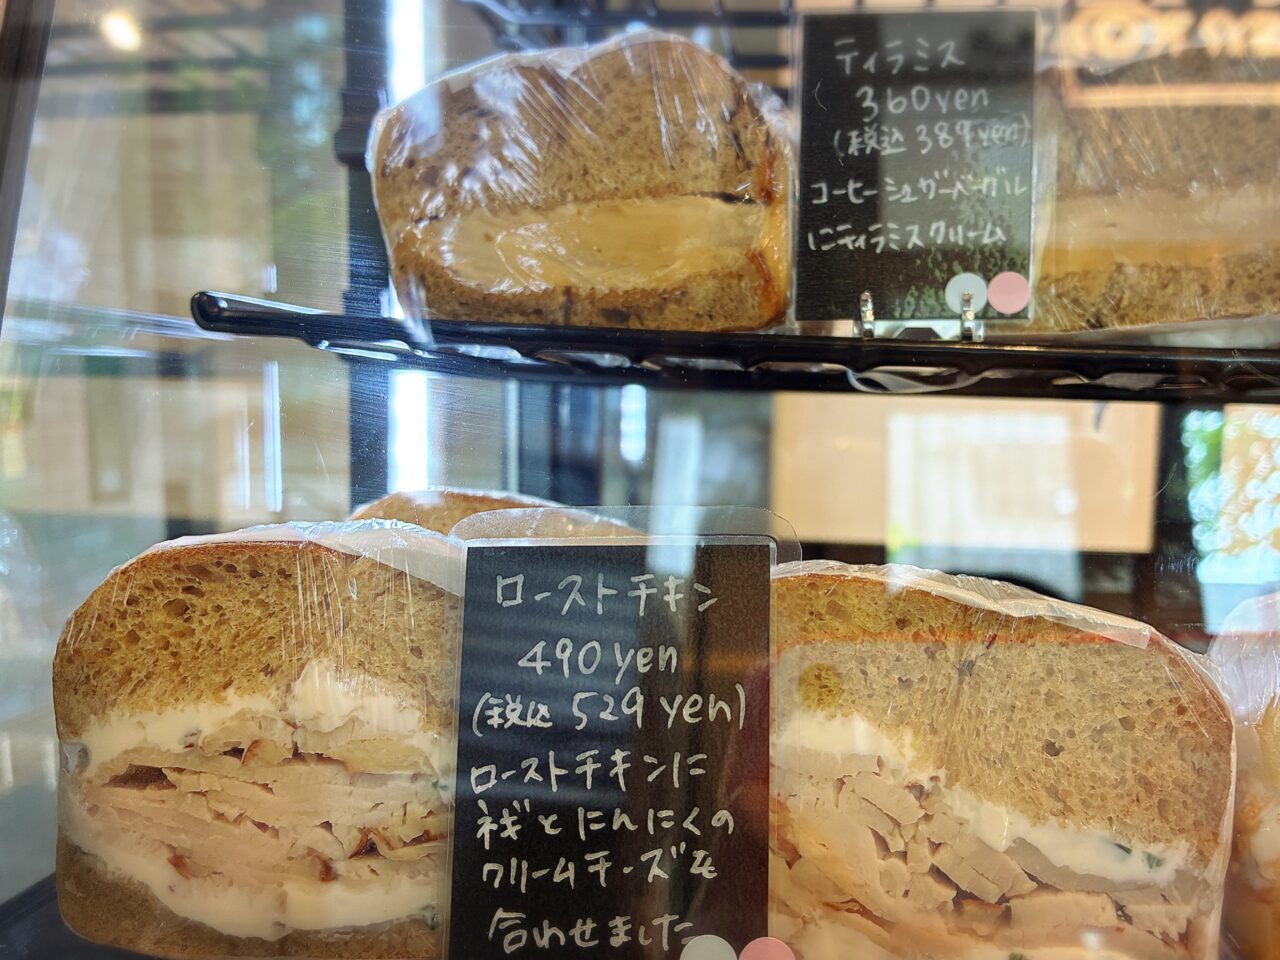 ティラミス
360yen
(税込 389yen)
コーヒーシュガーベーグル
にティラミスクリーム
ローストチキン
490yen
(税込 529yen)
ローストチキンに
ネギとにんにくの
クリームチーズを
合わせました